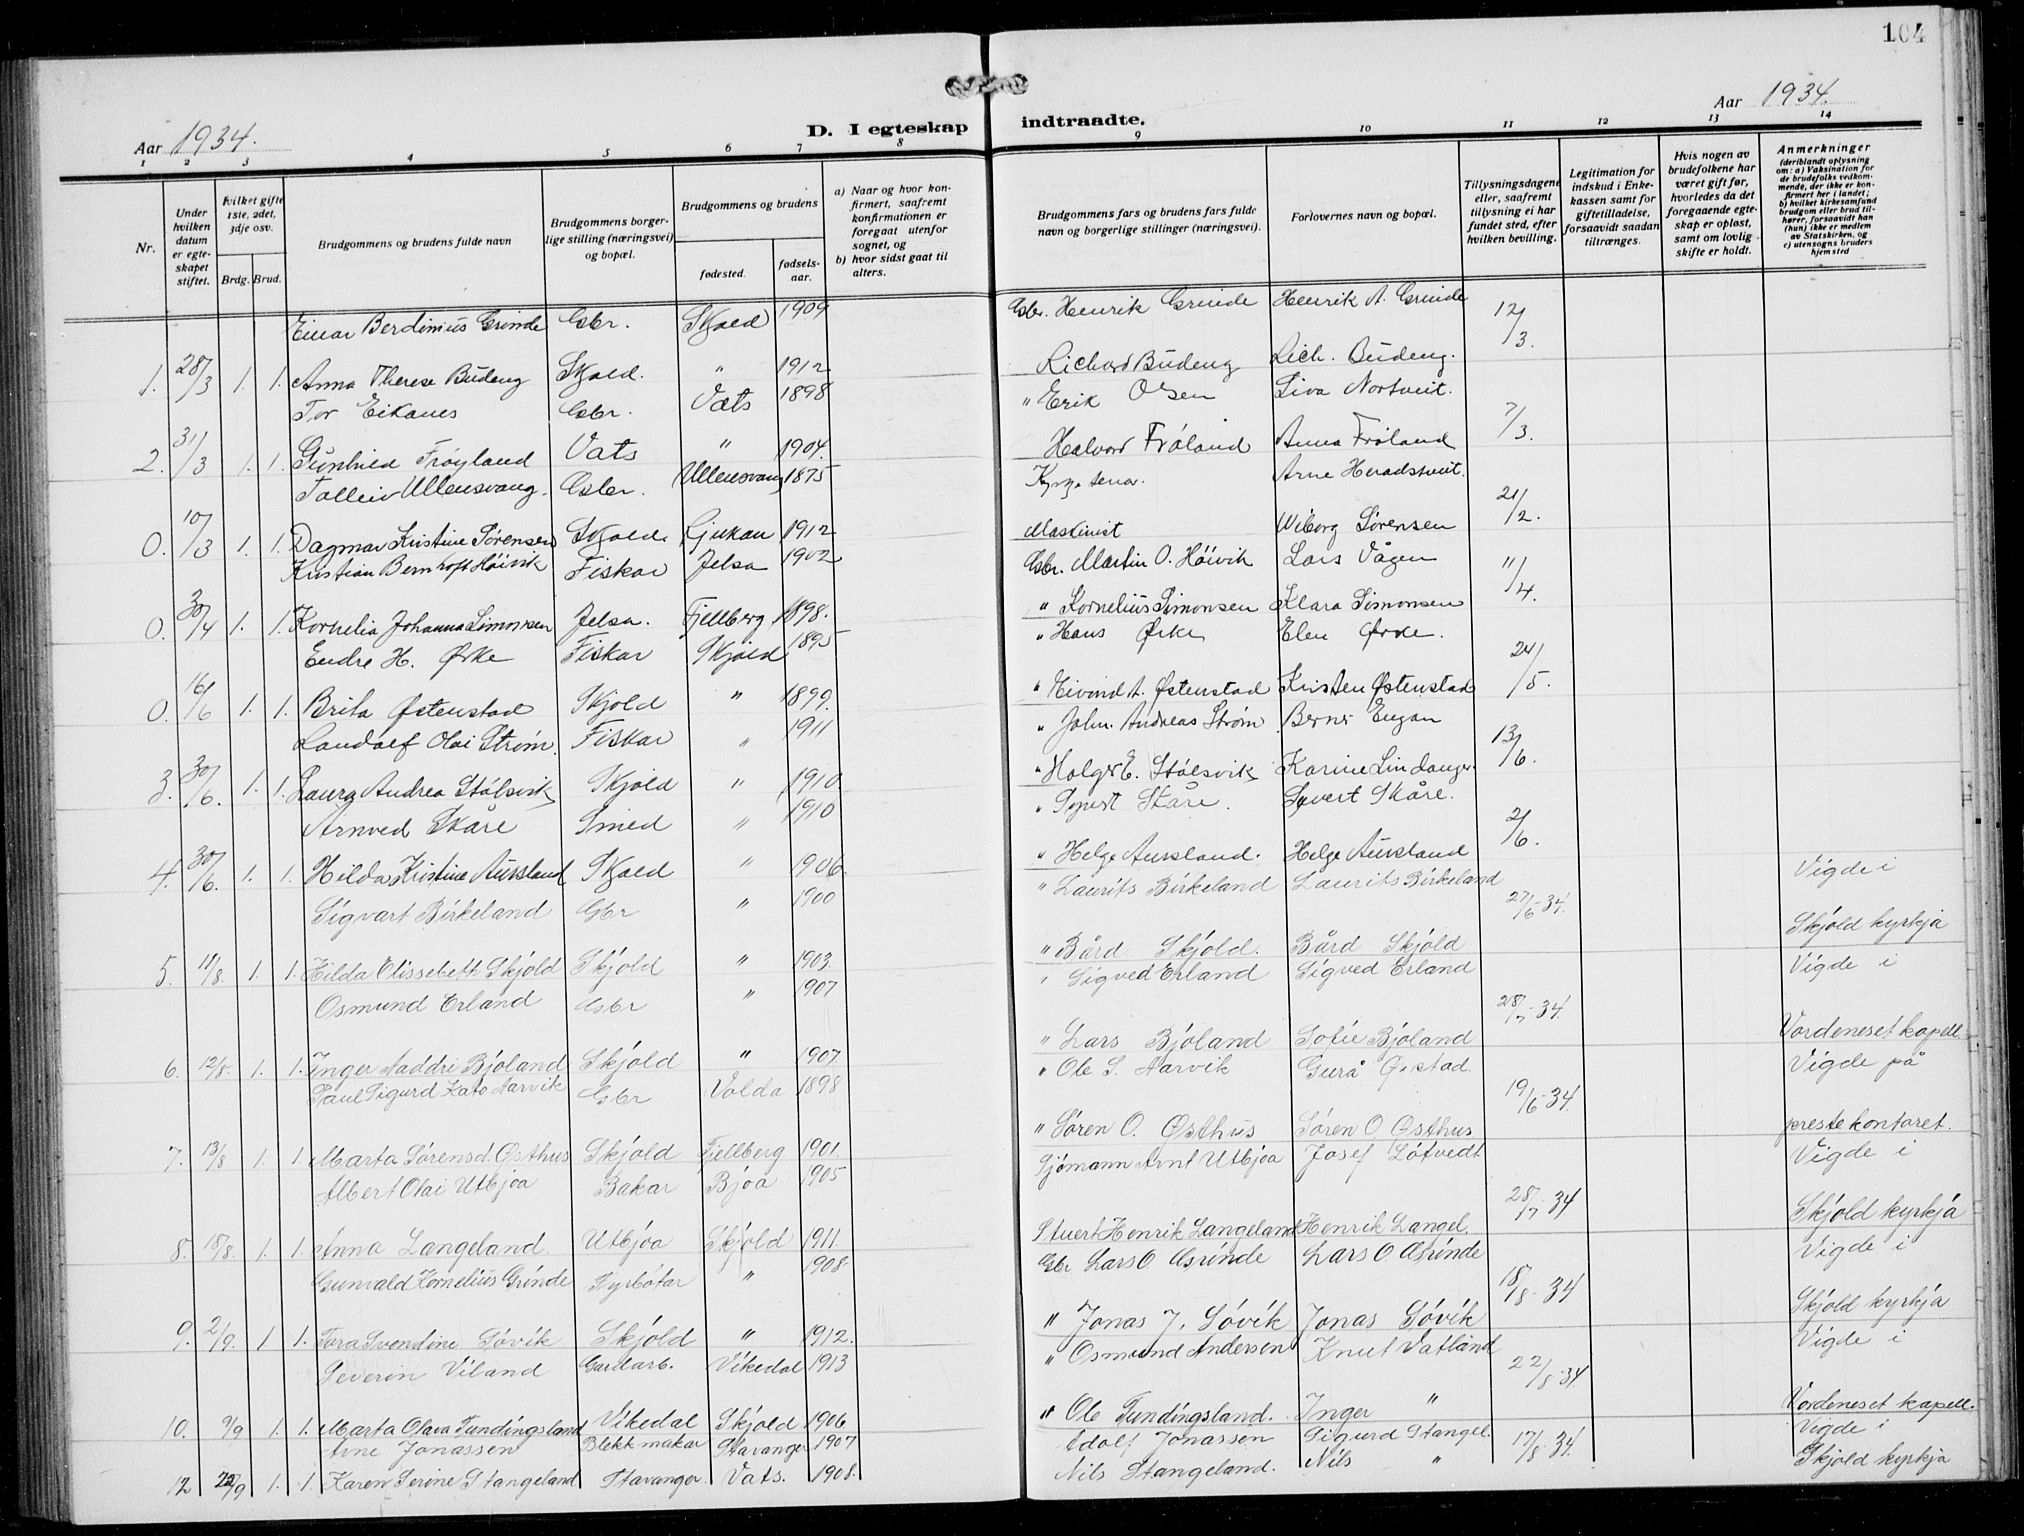 104
Aar 1934.
D. I egteskap indtraadte.
Aar 1934.
1 2 3 4 5 6 7 8 9 10 11 12 13 14
Nr.
Under hvilken datum er egteskapet stiftet.
Hvilket gifte 1ste, 2det, 3dje osv.
Brdg. Brud.
Brudgommens og brudens fulde navn
Brudgommens borgerlige stilling (næringsvei) og bopæl.
Brudgommens og brudens
fødested.
fødselsaar.
a) Naar og hvor konfirmert, saafremt konfirmationen er foregaat utenfor sognet, og
b) hvor sidst gaat til alters.
Brudgommens fars og brudens fars fulde navn og borgerlige stillinger (næringsvei).
Forlovernes navn og bopæl.
Tillysningsdagene eller, saafremt tillysning ei har fundet sted, efter hvilken bevilling.
Legitimation for indskud i Enkekassen samt for giftetilladelse, forsaavidt saadan tiltrænges.
Hvis nogen av brudefolkene har været gift før, hvorledes da det foregaaende egteskap er opløst, samt om lovlig skifte er holdt.
Anmerkninger
(deriblandt oplysning om: a) Vaksination for de brudefolks vedkommende, der ikke er konfirmert her i landet; b) hvilket kirkesamfund brudgom eller brud tilhører, forsaavidt han (hun) ikke er medlem av Statskirken, og c) utensogns bruders hjemsted
Einar Berdinius Grinde Gbr. Skjold 1909 Gbr. Henrik Grinde Henrik A. Grinde 12/3.
1. 28/3 1. 1. Anna Therese Budeng Skjold. " 1912 Richard Budeng Rich. Budeng.
Tor Eikanes Gbr. Vats 1898 " Erik Olsen Siva Nortveit. 7/3.
2. 31/3 1. 1. Gunhild Frøyland Vats " 1904. Halvard Frøland Anna Frøland
Tolleiv Ullensvang. Gbr. Ullensvang 1875 Arne Heradstveit. 21/2.
0. 10/3 1. 1. Dagmar Kristine Sørensen Skjold Rjukan 1912 Maskinist Wiborg Sørensen
Kristian Bernhoft Høivik Fiskar Jelsa 1902 Gbr. Martin O. Høivik Lars Vågen 11/4.
0. 30/4 1. 1. Kornelia Johanna Simonsen Jelsa. Fjellberg 1898. " Kornelius Simonsen Klara Simonsen
Endre H. Ørke Fiskar Skjold 1895 " Hans Ørke Elen Ørke. 24/5.
0. 16/6 1. 1. Brita Østenstad Skjold " 1899. " Eivind A. Østenstad Kristen Østenstad
Landolf Olai Strøm. Fiskar " 1911 " John. Andreas Strøm Berner Engan 13/6.
3. 30/6. 1. 1. Laura Andrea Stølsvik Skjold " 1910. " Holger E. Stølsvik Karine Lindanger.
Arnved Skåre Smed " 1910 " Syvert Skåre. Syvert Skåre. 2/6.
4. 30/6. 1. 1. Hilda Kristine Aursland Skjold " 1906. " Helge Aursland. Helge Aursland Vigde i
Sigvart Birkeland Gbr " 1900 " Laurits Birkeland Laurits Birkeland 27/6-34. Skjold kyrkja
5. 11/8. 1. 1. Hilda Elissebeth Skjold Skjold " 1903. " Bård Skjold. Bård Skjold
Osmund Erland Gbr " 1907 " Sigved Erland Sigved Erland 28/7-34. Vigde i
6. 12/8. 1. 1. Inger Naddri Bjoland Skjold " 1907. " Lars Bjoland Sofie Bjoland Vordeneset kapell.
Paul Sigurd Kato Aarvik Gbr Volda 1898 " Ole S. Aarvik Gurå Ørstad 19/6-34. Vigde på
7. 13/8 1. 1. Marta Sørensd. Østhus Skjold Fjellberg 1901. " Søren O. Østhus Søren O Østhus prestekontoret.
Albert Olai Utbjoa Bakar Bjoa 1905 Sjømann Arnt Utbjoa Josef Løtvedt 28/7-34 Vigde i
8. 18/8. 1. 1. Anna Langeland. Utbjoa Skjold 1911. Stuert Henrik Langeland Henrik Langel. Skjold kyrkja
Gunvald Kornelius Grinde Fyrbøtar " 1908. Gbr Lars O Grinde Lars O Grinde 18/8-34 Vigde i
9. 2/9. 1 1. Tora Svendine Søvik Skjold " 1912. " Jonas J. Søvik Jonas Søvik Skjold kyrkja
Severin Viland Gardarb. Vikedal 1913 " Osmund Andersen Knut Vatland 22/8-34. Vigde i
10. 9/9 1. 1. Marta Olava Tundingsland Vikedal Skjold 1906 " Ole Tundingsland. Inger " Vordeneset kapell.
Arne Jonassen Blekkmakar Stavanger 1907 Adolf Jonassen Sigurd Stangel. 17/8-34. Vigde i
12 22/9 1. 1. Karen Serine Stangeland Stavanger Vats. 1908. Nils Stangeland. Nils " Skjold kyrkja